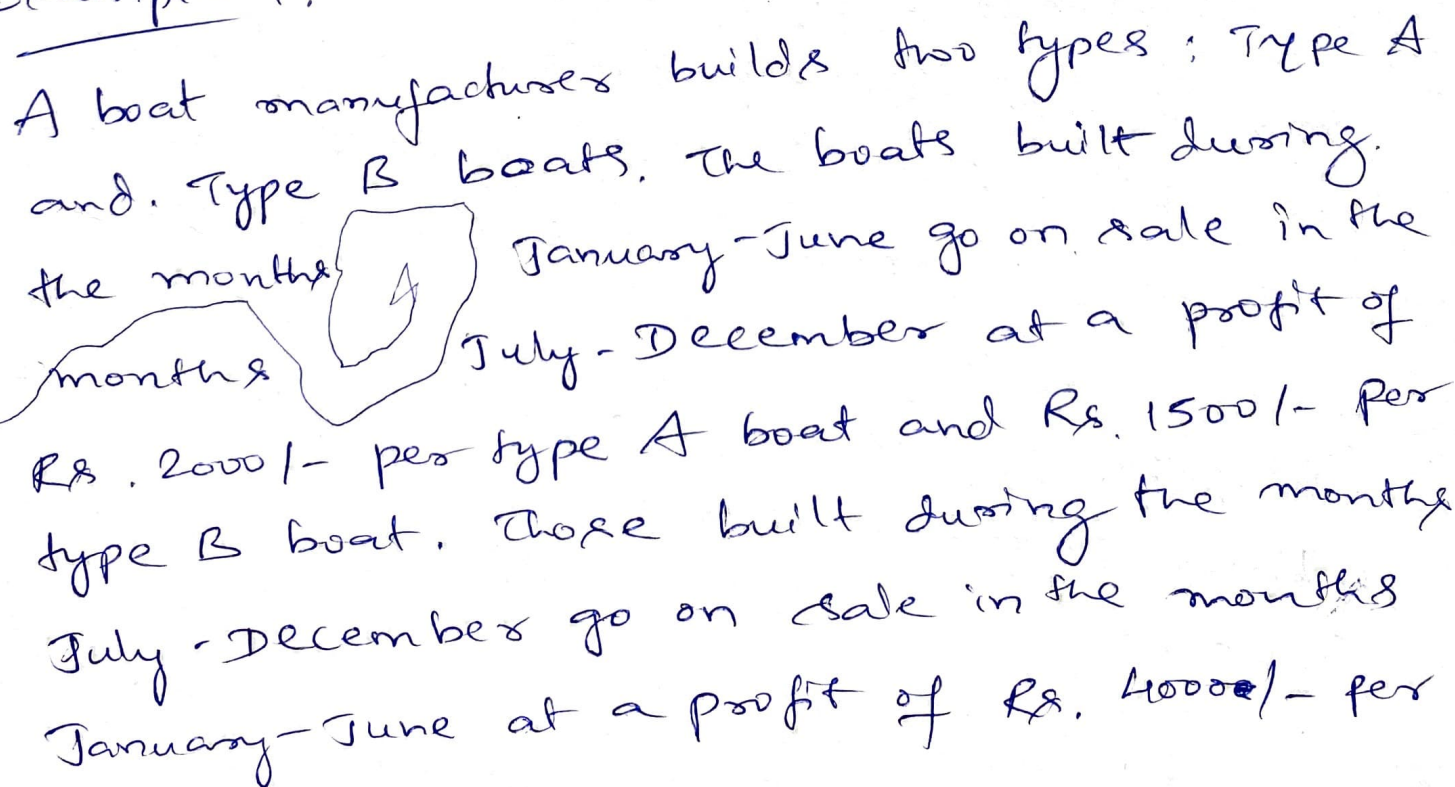 A boat manufacturer builds two types : Type A
and. Type B boats. The boats built during.
the months January - June go on sale in the
months July - December at a profit of
Rs. 2000/- per type A boat and Rs. 1500/- Per
type B boat. Those built during the months
July - December go on sale in the months
January - June at a profit of Rs. 4000/- per